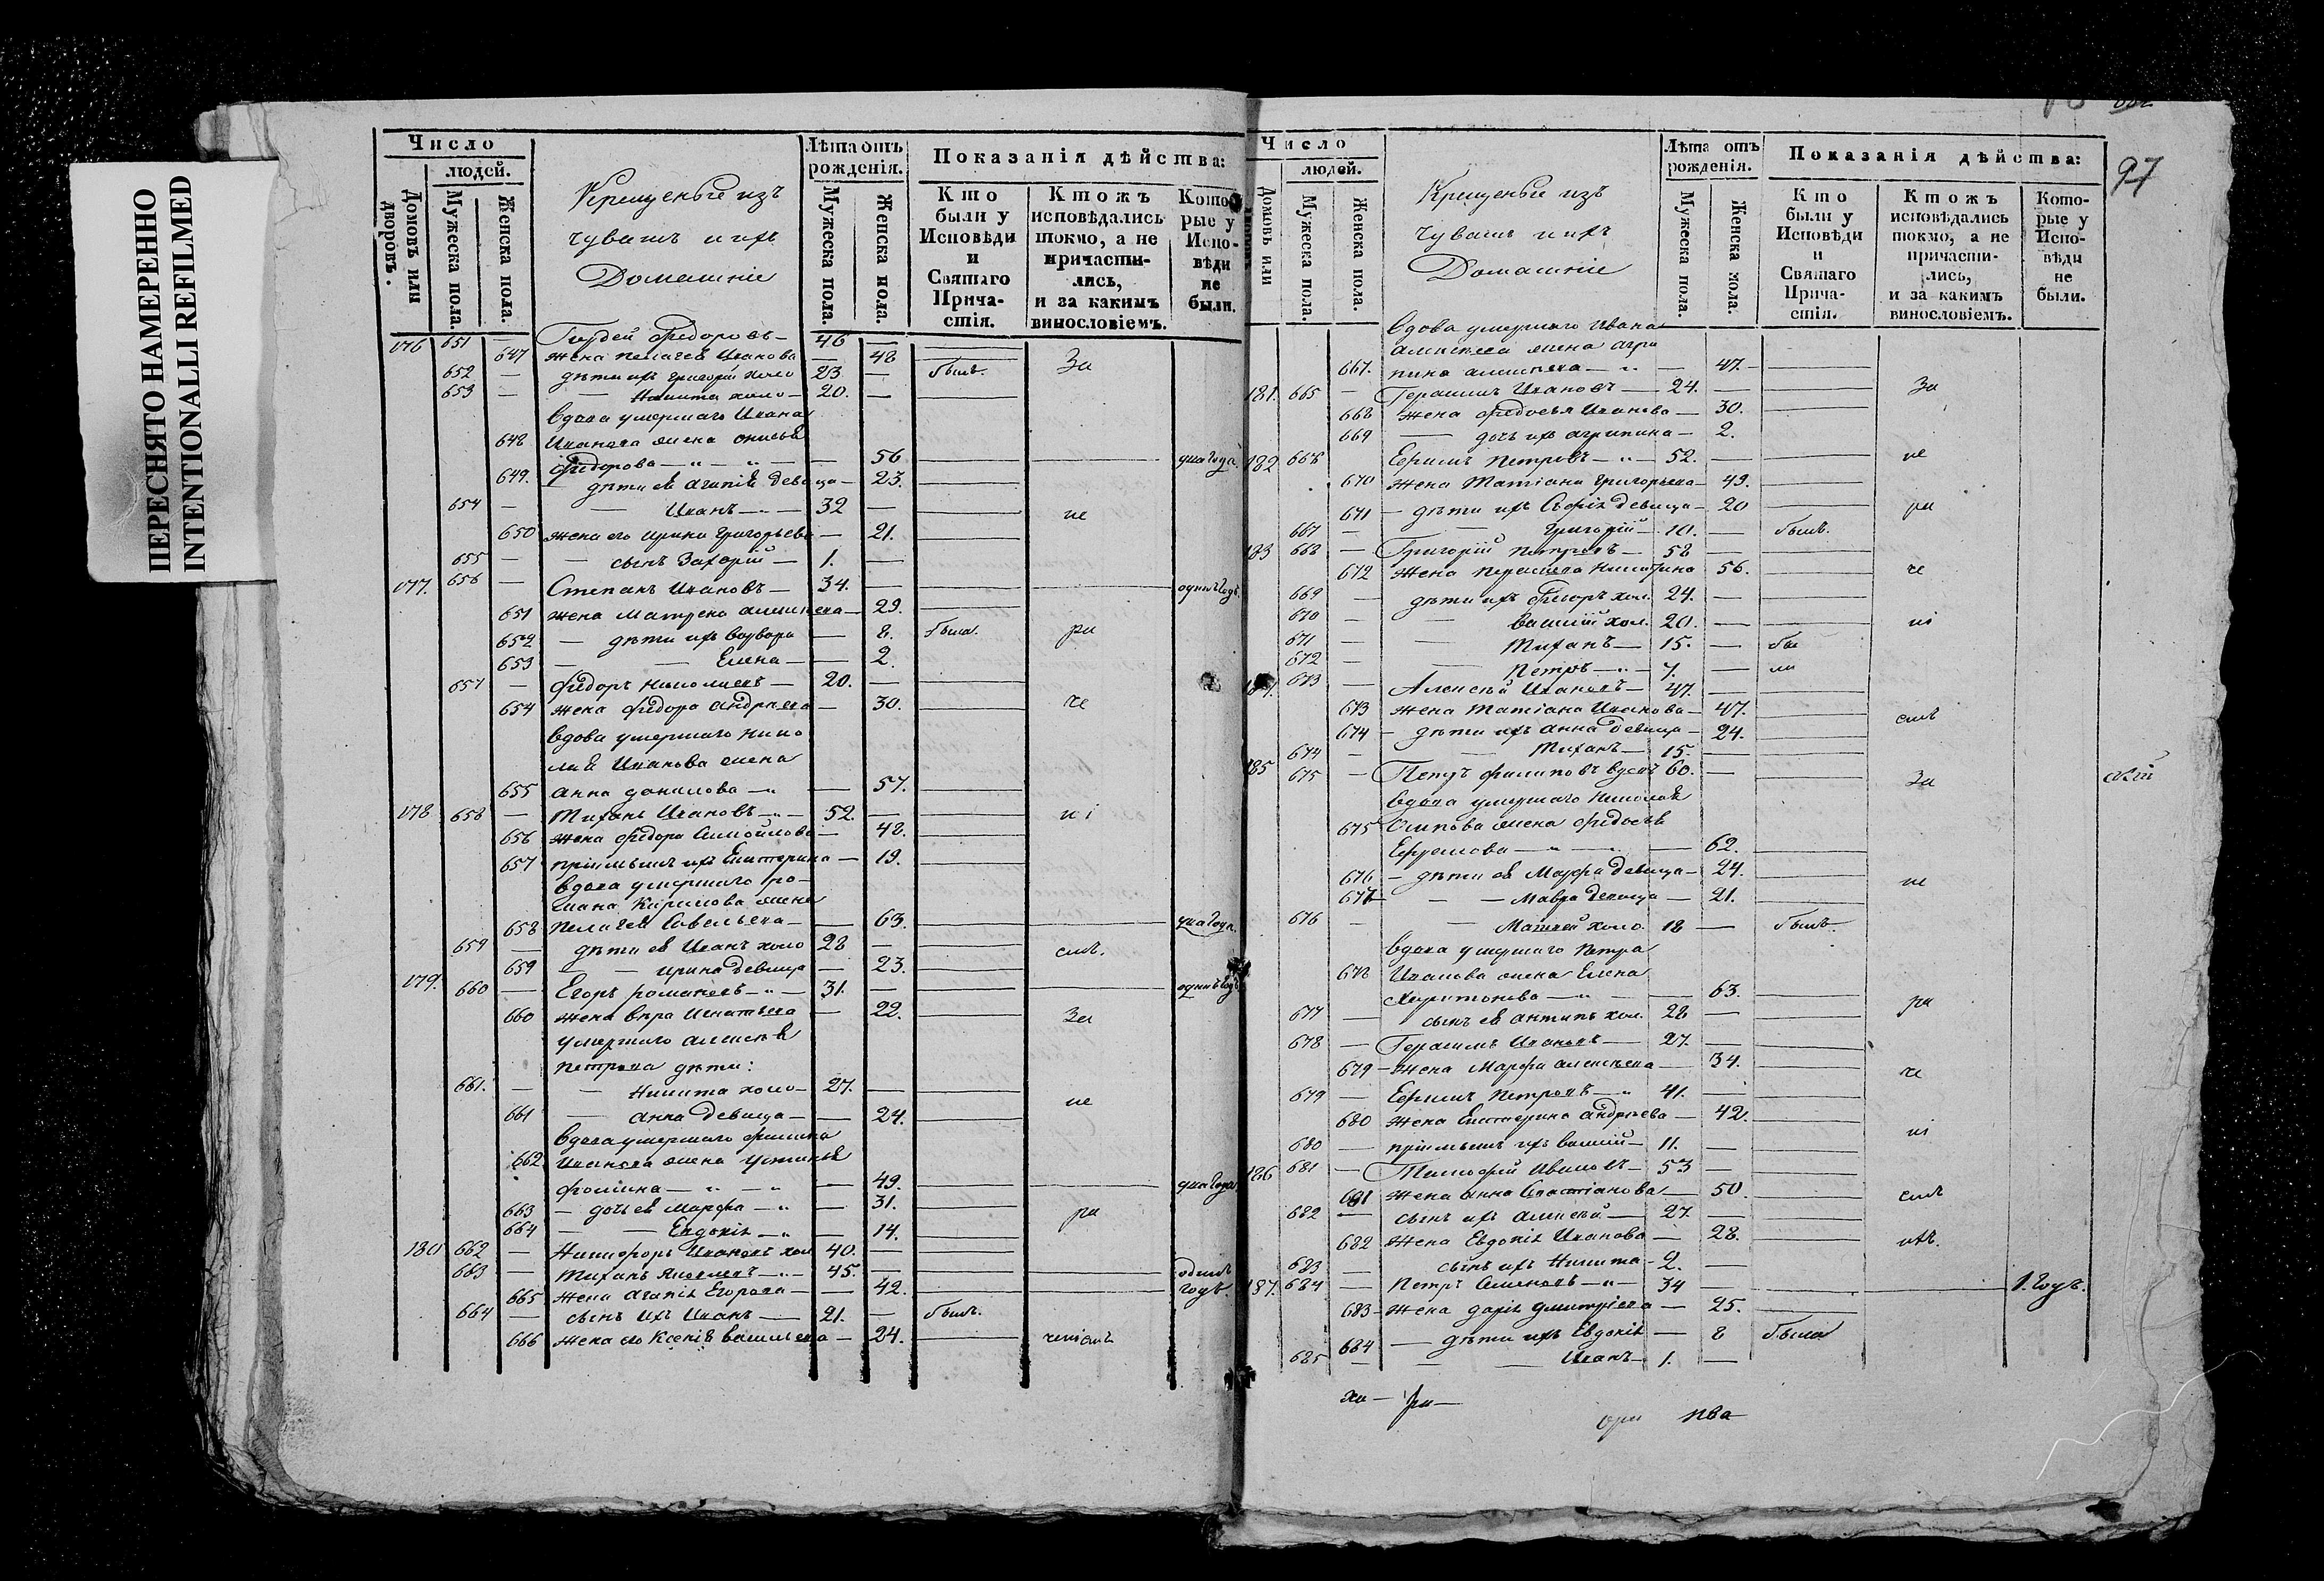 ПЕРЕСНЯТО НАМЕРЕННО
INTENTIONALLI REFILMED
Число
людей.
Домовъ или дворовъ.
Мужеска пола.
Женска пола.
Крещеные изъ
чувашъ и ихъ
Домашніе
Лѣта отъ рожденія.
Мужеска пола.
Женска пола.
Показанія дѣйства:
Кто были у Исповѣди и Святаго Причастія.
Ктожъ исповѣдались токмо, а не причастились, и за какимъ винословіемъ.
Которые у Исповѣди не были.
176 651 — Гордей Федоровъ — 46 —
647 жена Пелагея Иванова — 48 За
652 — дѣти ихъ Григорій холо 23 — былъ.
653 — Никита холо — 20. —
вдова умершаго Ивана
648 Иванова жена
Федорова — 56 два года.
649. дѣти ея Агапія девица — 23.
654 — Иванъ — 32 — не
650 жена его Ирина Григорьева — 21.
655 — сынъ Захарій — 1. —
177. 656 — Степанъ Ивановъ — 34. — одинъ годъ.
651 жена Матрена Алексеева — 29.
652 — дѣти ихъ Варвара — 8. была. ра
653 — Елена — 2.
657 — Федоръ Николаевъ — 20. —
654 жена Федора Андреева — 30. че
вдова умершаго Нико
лая Иванова жена
655 Анна Данилова — 57.
178 658 — Иванъ — 52. — ні
656 жена Федора Самойлова — 48.
657 пріемышъ ихъ Екатерина — 19.
вдова умершаго Ро-
мана Кирилова жена
658 Пелагея Савельева — 63. два года.
659 — дѣти ея Иванъ холо 28 — емъ.
659 — Ирина девица — 23.
179. 660 — Егоръ Романовъ — 31. — одинъ годъ.
660 жена Вѣра Игнатьева — 22. За
умершаго Алексея
Петрова дѣти:
661. — Никита холо — 27. — не
661 — Анна девица — 24.
вдова умершаго Филипа
662 Иванова жена Устинья
Фомина — 49. два года.
663 — дочь ея Марфа — 31. ра
664 — Евдокія — 14.
180 662 — Никифоръ Ивановъ хол 40. —
663 — Яковлевъ — 45. — одинъ
665 жена Агапія Егорова — 42. годъ.
664 — сынъ ихъ Иванъ — 21. — былъ.
666 жена его Ксенія Васильева — 24. ченіемъ
97
Число
людей.
Домовъ или
Мужеска пола.
Женска пола.
Крещеные изъ
чувашъ и ихъ
Домашніе
Лѣта отъ рожденія.
Мужеска пола.
Женска пола.
Показанія дѣйства:
Кто были у Исповѣди и Святаго Причастія.
Ктожъ исповѣдались токмо, а не причастились, и за какимъ винословіемъ.
Которые у Исповѣди не были.
вдова умершаго Ивана
Алексеева жена Агри
667. пина Алексеева — 47.
181. 665 — Герасимъ Ивановъ — 24. За
668 жена Федосья Иванова — 30.
669 — дочь ихъ Агрипина — 2.
182 666 Ефимъ Петровъ — 52. — не
670 жена Татіана Григорьева — 49.
671 — дѣти ихъ Софія девица — 20 ра
667 — Григорій — 10. — былъ.
183 668 — Григорій Петровъ — 58 —
672 жена Никитина 56. че
669 — дѣти ихъ Федоръ хол. 24. —
670 — Василій хол. 20. — ні
671 — 15. — бы
672 — Петръ — 7. — ли
184. 673 — Алексей Ивановъ — 47. —
673 жена Татіана Иванова — 47. емъ
674 — дѣти ихъ Анна девица — 24.
674 — 15. —
185 675 — Петръ Филиповъ вдовъ 60. — За
вдова умершаго Николая
675 Осипова жена Федосья
Ефремова — 62.
676 — дѣти ея Марфа девица — 24. не
677 — Мавра девица — 21.
676 — Матвей холо. 18 — былъ.
вдова умершаго Петра
678 Иванова жена Елена
Харитонова — 63. ра
677 — сынъ ея Антипъ хол. 28 —
678 — Герасимъ Ивановъ — 27. —
679 — жена Марфа Алексеева — 34. че
679 — Ефимъ Петровъ — 41. —
680 жена Екатерина Андреева — 42. ні
680 — пріемышъ ихъ Василій — 11. —
186 681 — Тимофей Ивановъ — 53 —
681 жена Анна — 50. емъ
682 — сынъ ихъ Алексей — 27. —
682 жена Евдокія Иванова — 28.
683 — сынъ ихъ Никита — 2. —
187. 684 — Петръ Семеновъ — 34 — 1. годъ.
683 — жена Дарія Дмитріева — 25.
684 — дѣти ихъ Евдокія — 8 была
685 — Иванъ — 1. —